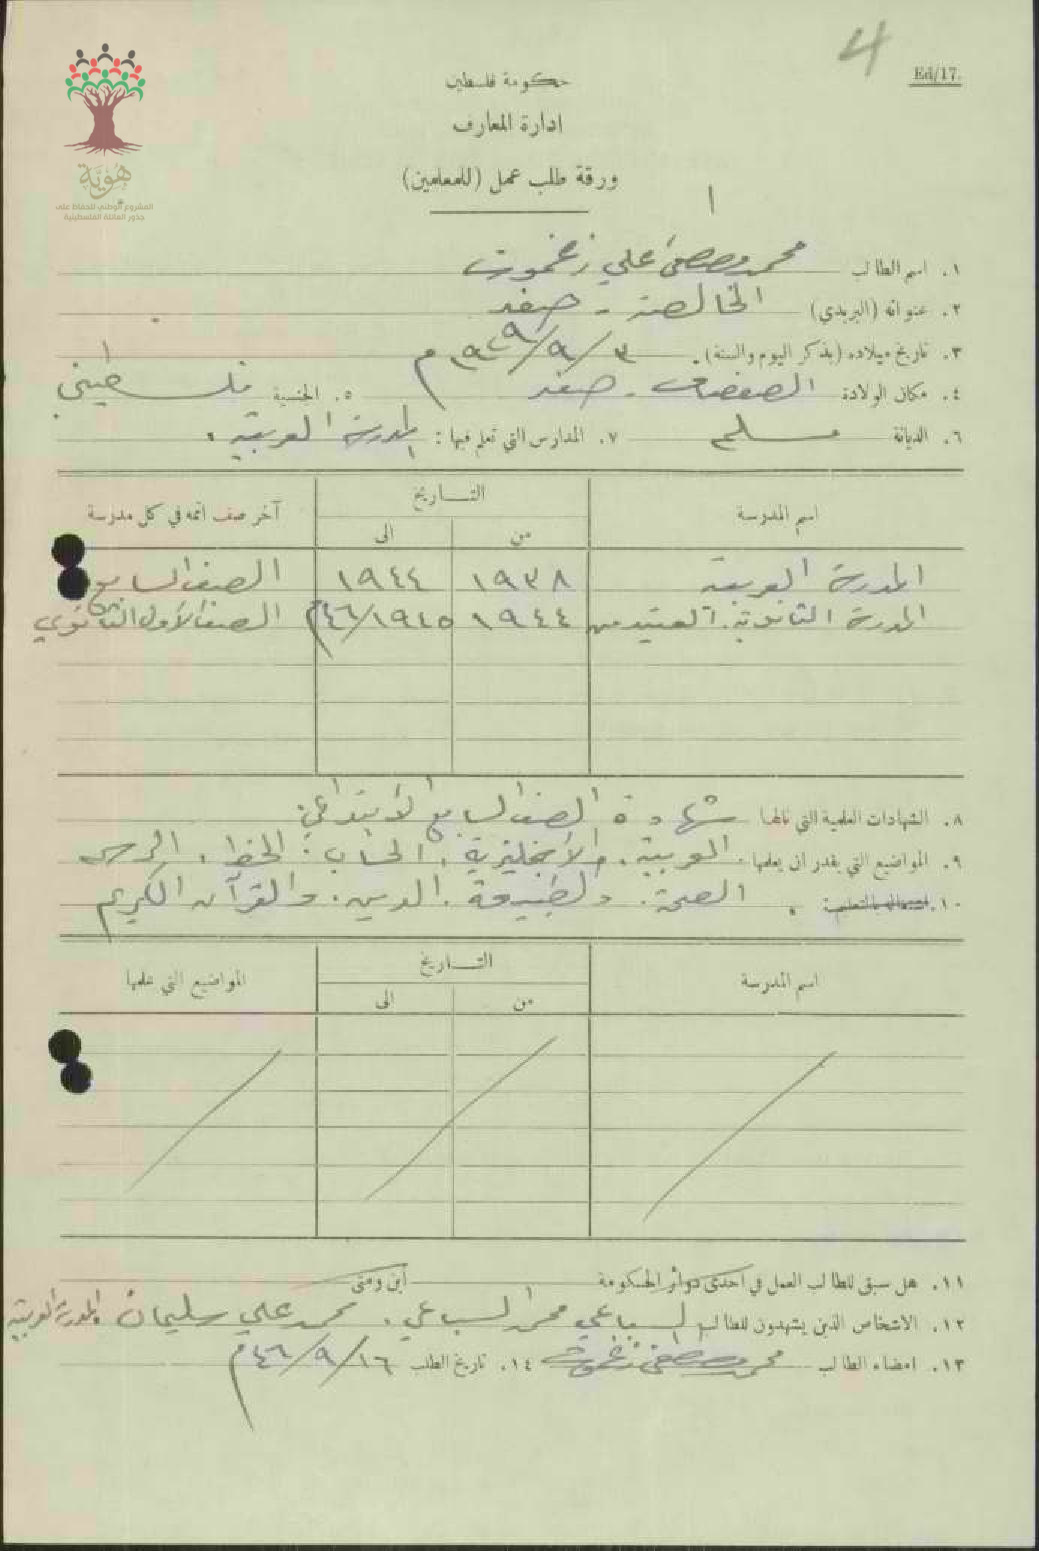 4
Ed/17.
حكومة فلسطين
ادارة المعارف
ورقة طلب عمل (للمعلمين)
هُوِيَّة
المشروع الوطني للحفاظ على
جذور العائلة الفلسطينية
١. اسم الطالب محمد مصطفى علي زغموت
٢. عنوانه (البريدي) الخالصة - صفد
٣. تاريخ ميلاده (بذكر اليوم والسنة). ٣/٩/١٩٢٩ م
٤. مكان الولادة الصفصاف - صفد ٥. الجنسية فلسطيني
٦. الديانة مسلم ٧. المدارس التي تعلم فيها: المدرسة العربية.
اسم المدرسة التــاريخ آخر صف اتمه في كل مدرسة
من الى
المدرسة العربية ١٩٣٨ ١٩٤٤ الصف السابع
المدرسة الثانوية. ١٩٤٤ ١٩٤٥/٤٦م الصف الأول الثانوي
٨. الشهادات العلمية التي نالها شهادة الصف السابع الابتدائي
٩. المواضيع التي يقدر ان يعلمها. العربية. والانجليزية. الحساب: الخط. الرسم
١٠. الصحة. والطبيعة. الدين. والقرآن الكريم
اسم المدرسة التــاريخ المواضيع التي علمها
من الى
١١. هل سبق للطالب العمل في احدى دوائر الحكومة اين ومتى
١٢. الاشخاص الذين يشهدون للطالب السباعي محمد السباعي. محمد علي سليمان المدرسة العربية
١٣. امضاء الطالب محمد مصطفى زغموت ١٤. تاريخ الطلب ١٦/٩/٤٦م